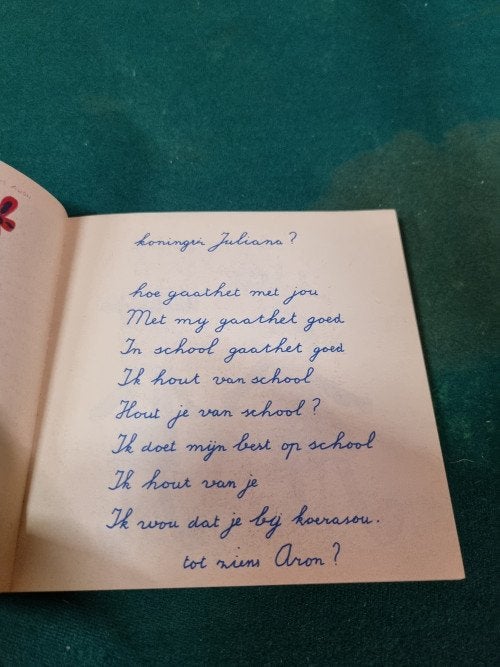 koningin Juliana?
hoe gaathet met jou
Met my gaathet goed
In school gaathet goed
Ik hout van school
Hout je van school?
Ik doet mijn best op school
Ik hout van je
Ik wou dat je bij koerasou.
tot ziens Aron?